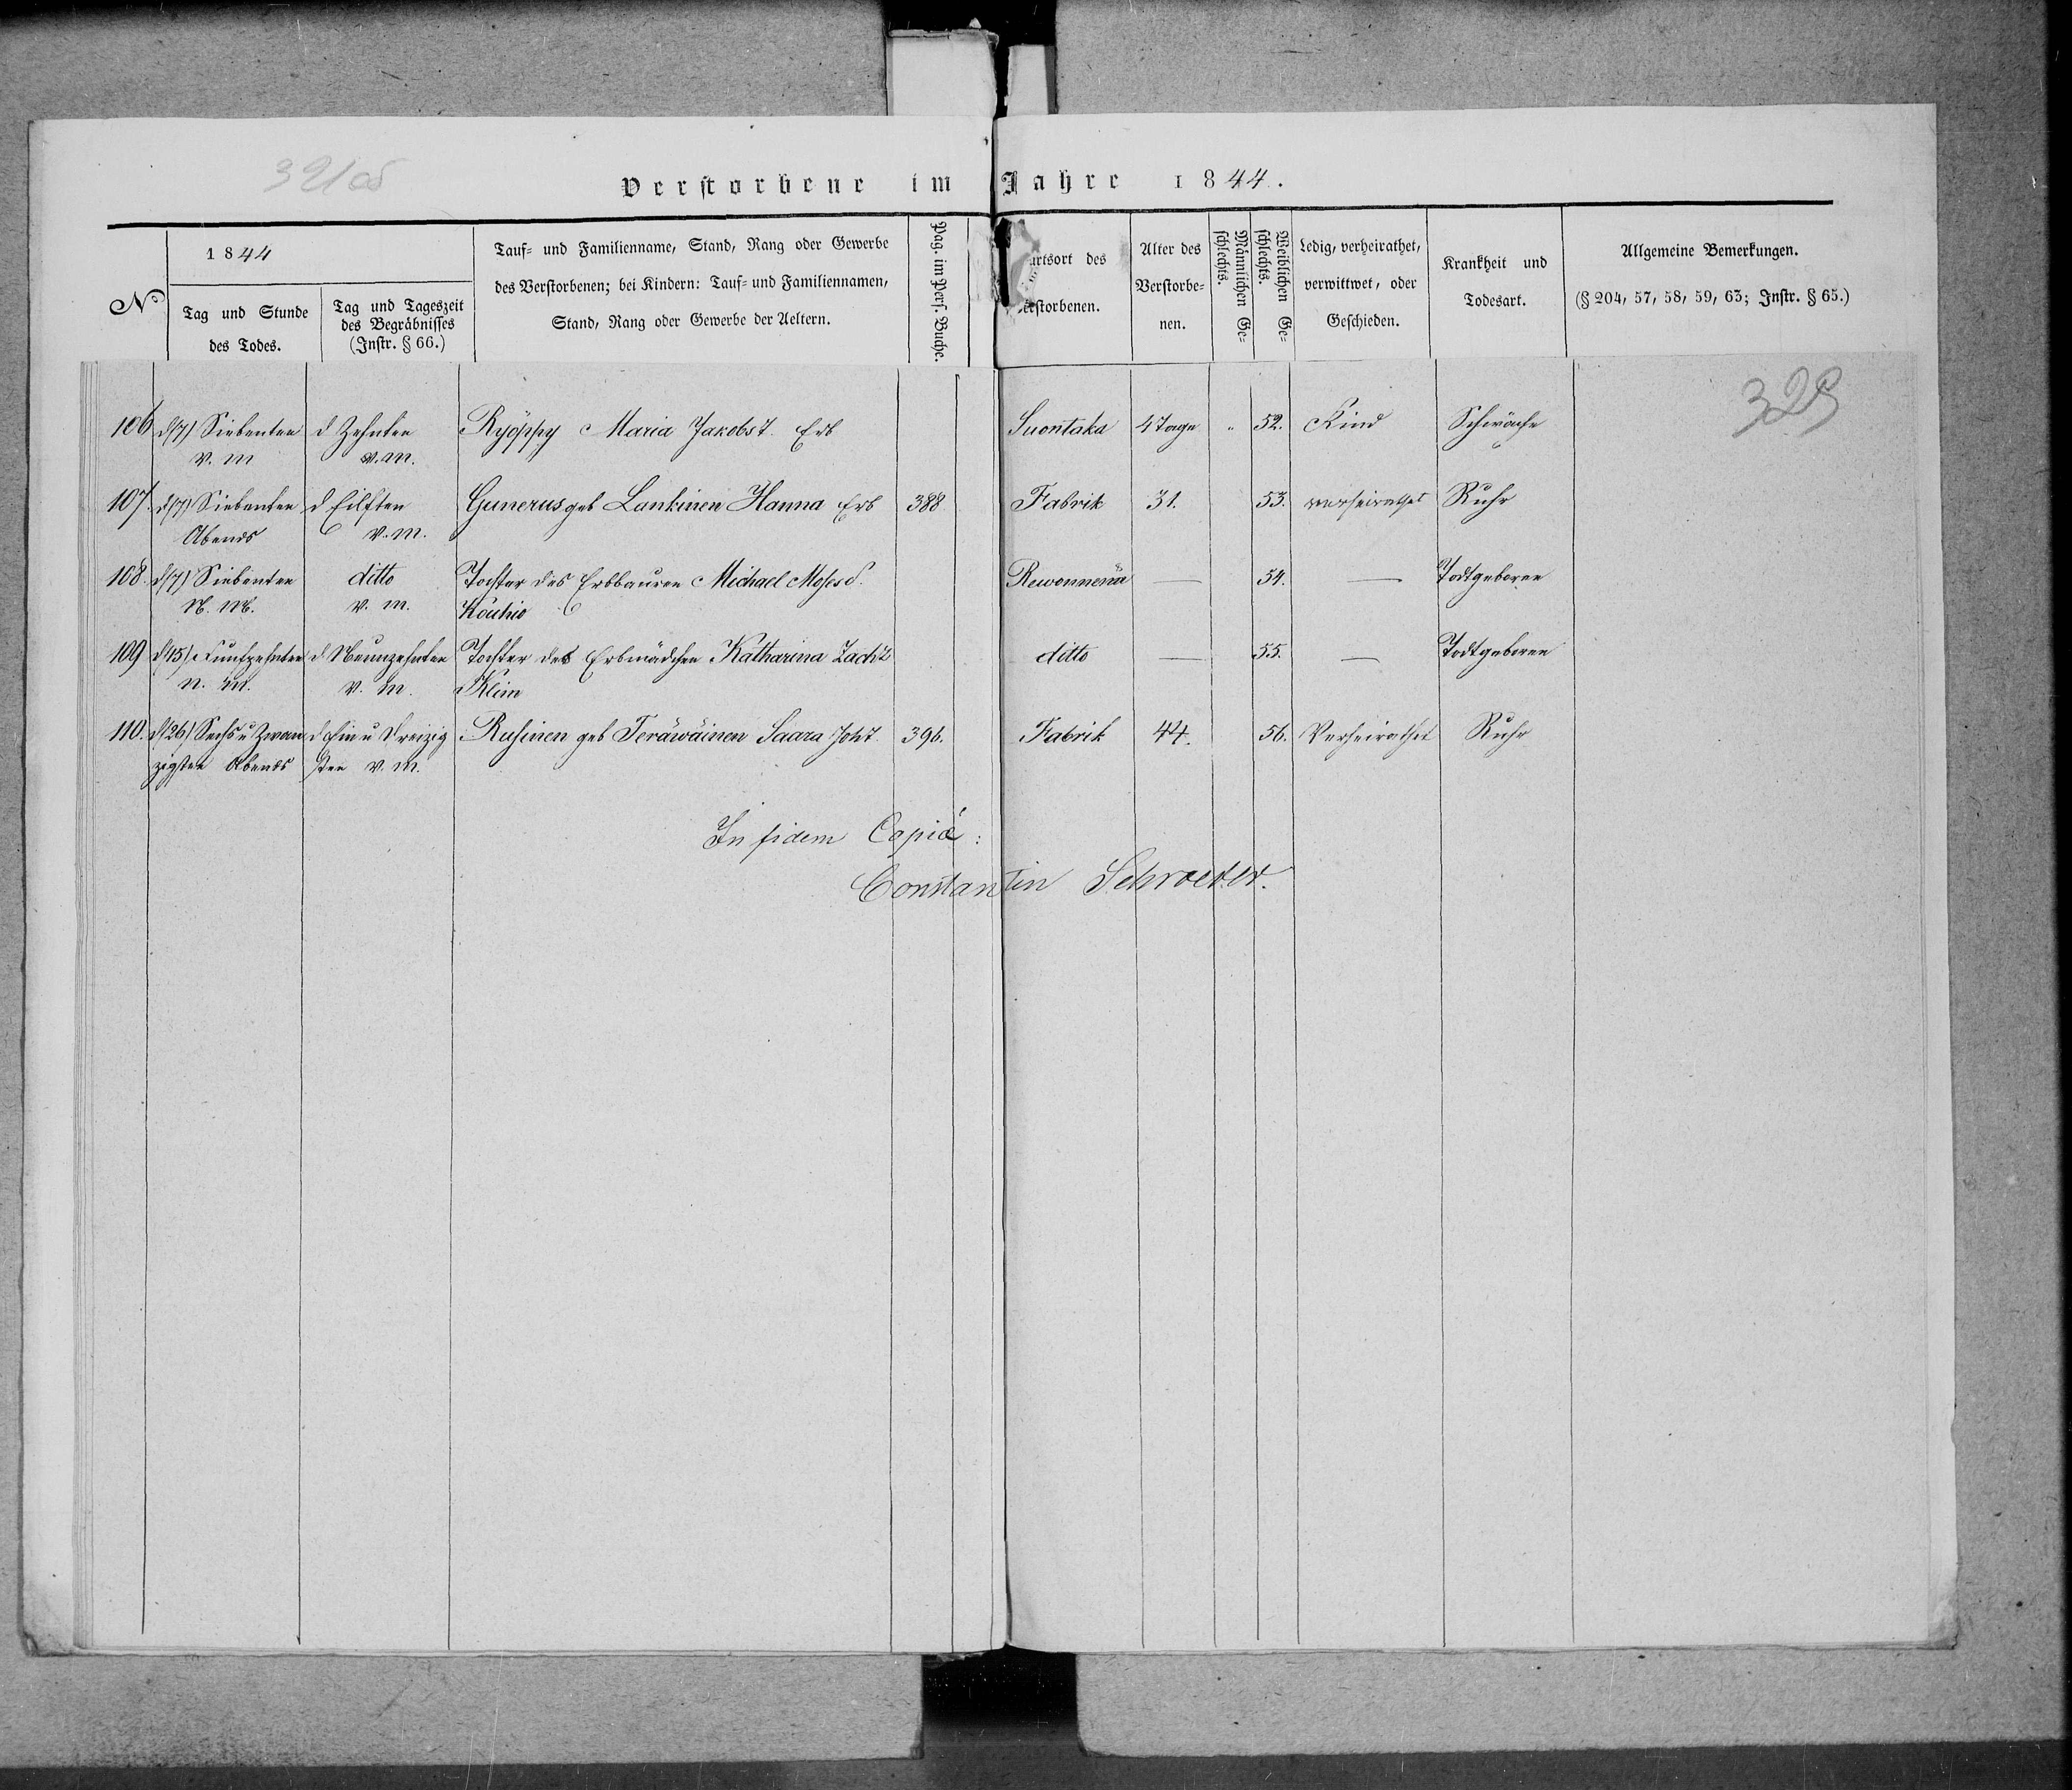 Verstorbene im Jahre 1844.
No
1844
Tag und Stunde des Todes.
Tag und Tageszeit des Begräbnisses (Instr. § 66.)
Tauf- und Familienname, Stand, Rang oder Gewerbe des Verstorbenen; bei Kindern: Tauf- und Familiennamen, Stand, Rang oder Gewerbe der Aeltern.
Pag. im Pers. Buche.
urtsort des erstorbenen.
Alter des Verstorbenen.
Männlichen Geschlechts.
Weiblichen Geschlechts.
Ledig, verheirathet, verwittwet, oder Geschieden.
Krankheit und Todesart.
Allgemeine Bemerkungen. (§ 204, 57, 58, 59, 63; Instr. § 65.)
329
106 d (7) Siebenten d Zehnten Ryöppy Maria Jakobs T. Erb Suontaka 4 Tage " 52. Kind Schwäche
v. m v. m.
107. d (7) Siebenten d Eilften Gunerus geb Lankinen Hanna Erb 388 Fabrik 31. 53. verheirathet Ruhr
Abends v. m.
108. d (7) Siebenten ditto Tochter des Erbbauren Michael Moses S. Rewonnenä — 54. — Todtgeboren
N. M. v. m. Kouhio
109 d (15) Funfzehnten d Neunzehnten Tochter des Erbmädchen Katharina Zach T ditto — 55. — Todtgeboren
n. m. v. m. Klim
110. d (26) Sechs u Zwan d Ein u Dreizig Rusinen geb Teräwäinen Saara Joh T. 396. Fabrik 44. 56. Verheirathet Ruhr
zigsten Abends sten v. m.
In fidem Copiæ:
Constantin Schroeder.